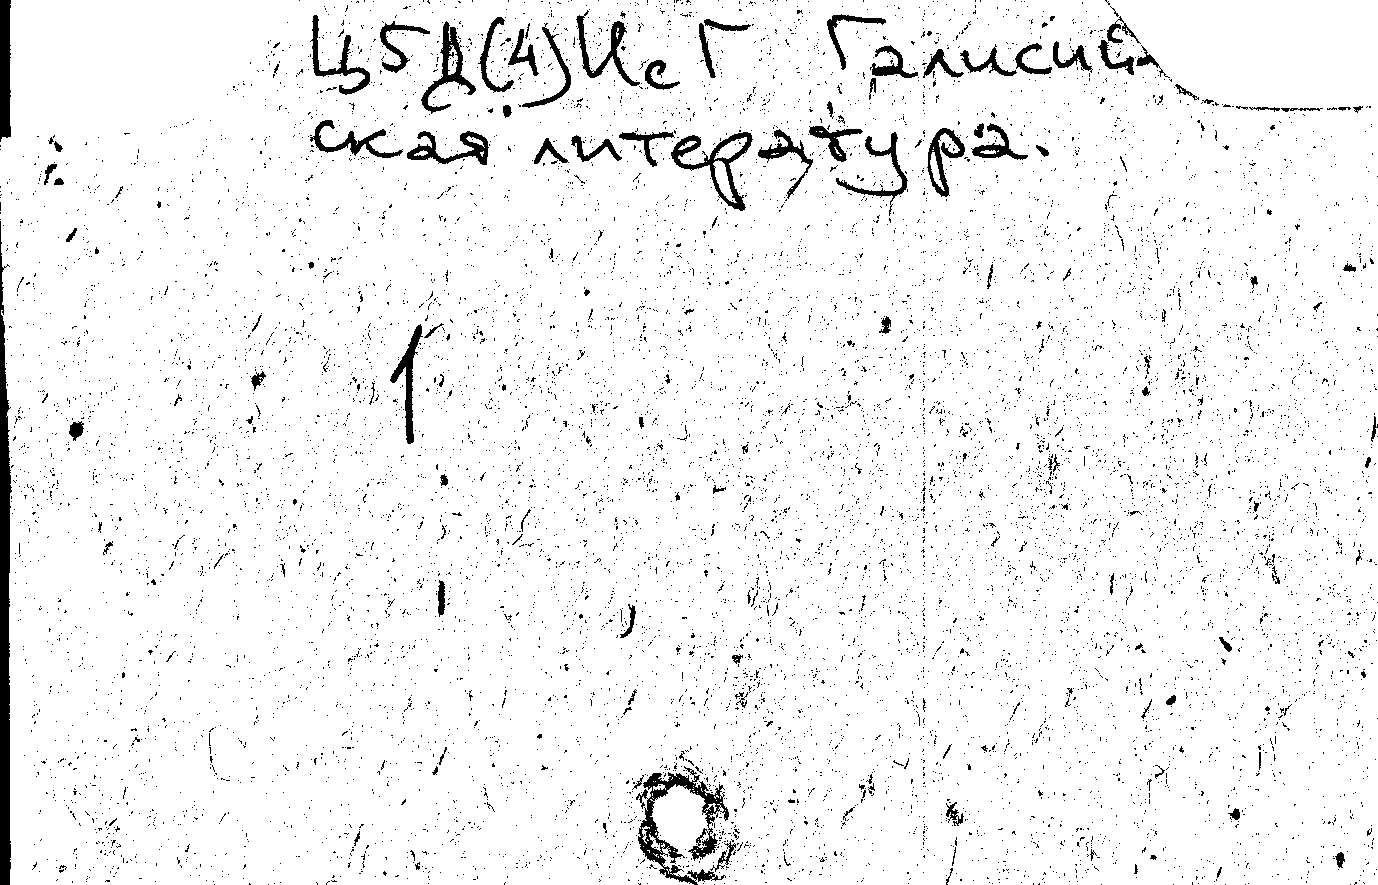 Ц5Д(4)Ис Г Галисий
ская литература.
1